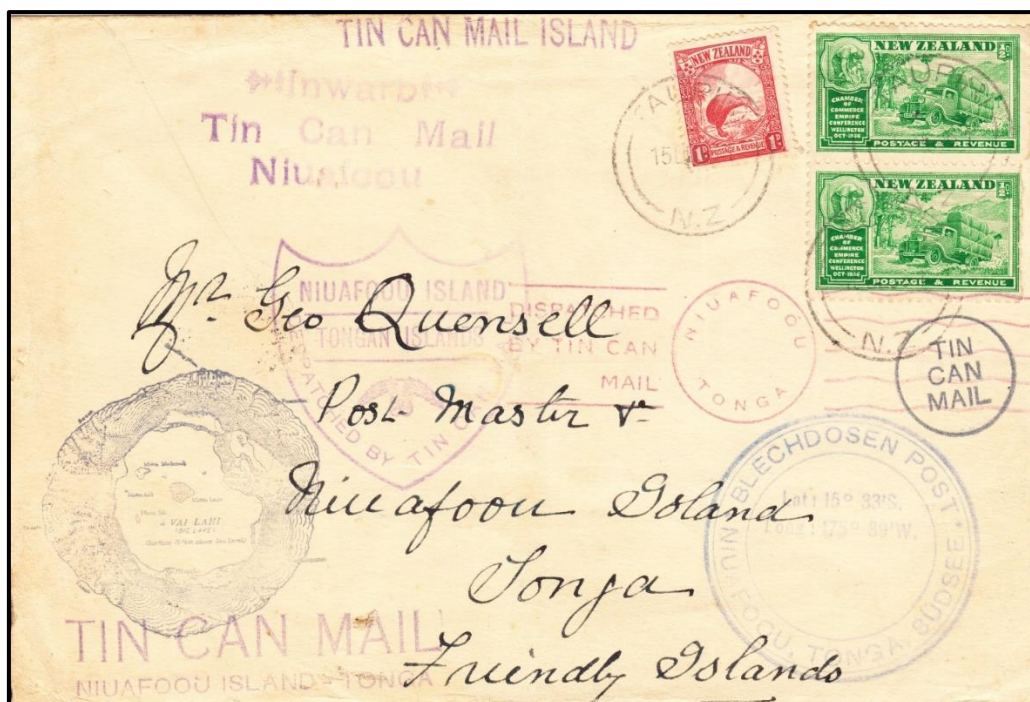 TIN CAN MAIL ISLAND
Inward
Tin Can Mail
Niuafoou
NEW ZEALAND
1D POSTAGE & REVENUE 1D
N.Z
15
NEW ZEALAND ½D
CHAMBER
OF
COMMERCE
EMPIRE
CONFERENCE
WELLINGTON
OCT-1936
POSTAGE & REVENUE
NEW ZEALAND ½D
CHAMBER
OF
COMMERCE
EMPIRE
CONFERENCE
WELLINGTON
OCT-1936
POSTAGE & REVENUE
N.Z
NIUAFOOU ISLAND
TONGAN ISLANDS
BY TIN
DISPATCHED
BY TIN CAN
MAIL
NIUAFOOU
TONGA
TIN
CAN
MAIL
Mr. Geo Quensell
Post Master
Niuafoou Island
Tonga
Friendly Islands
VAI LAHI
BLECHDOSEN POST
NIUAFOOU, TONGA, SÜDSEE
Lat: 15° 33'S.
Long: 175° 39'W.
TIN CAN MAIL
NIUAFOOU ISLAND-TONGA